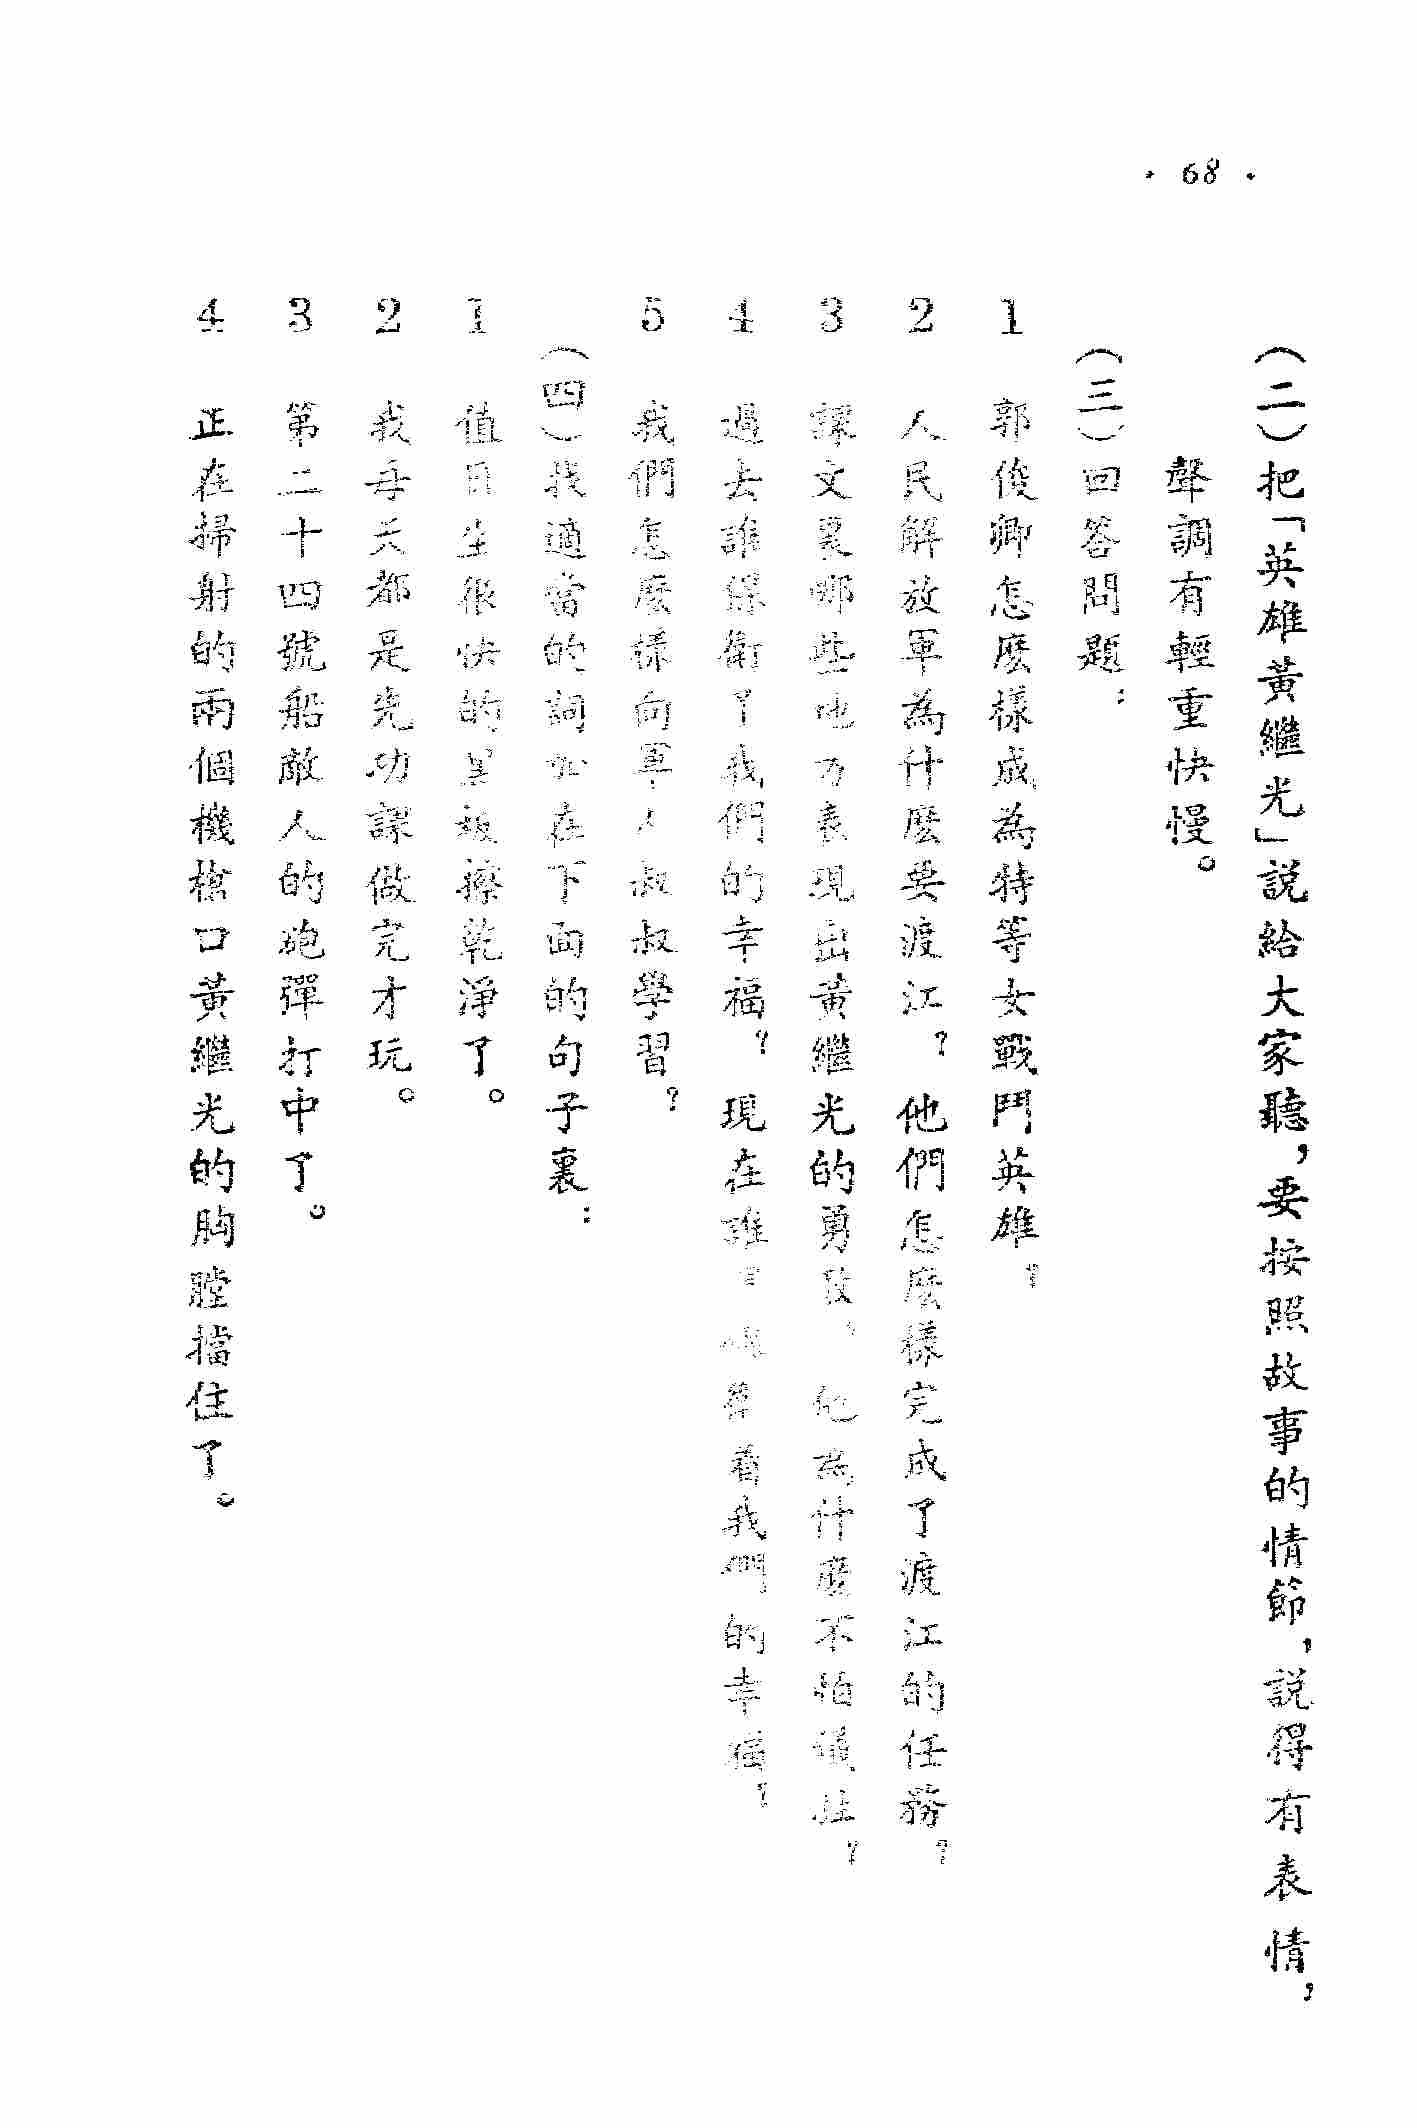 · 68 ·
(二)把「英雄黃繼光」説給大家聽，要按照故事的情節，説得有表情，
聲調有輕重快慢。
(三)回答問題：
1 郭俊卿怎麽樣成為特等女戰鬥英雄？
2 人民解放軍為什麽要渡江？他們怎麽樣完成了渡江的任務？
3 課文裏哪些地方表現出黃繼光的勇敢。他為什麽不怕犧牲？
4 過去誰保衛了我們的幸福？現在誰 保衛着我們的幸福？
5 我們怎麽樣向軍人叔叔學習？
(四)找適當的詞加在下面的句子裏：
1 值日生很快的 黑板擦乾淨了。
2 我每天都是先功課做完才玩。
3 第二十四號船敵人的砲彈打中了。
4 正在掃射的兩個機槍口黃繼光的胸膛擋住了。